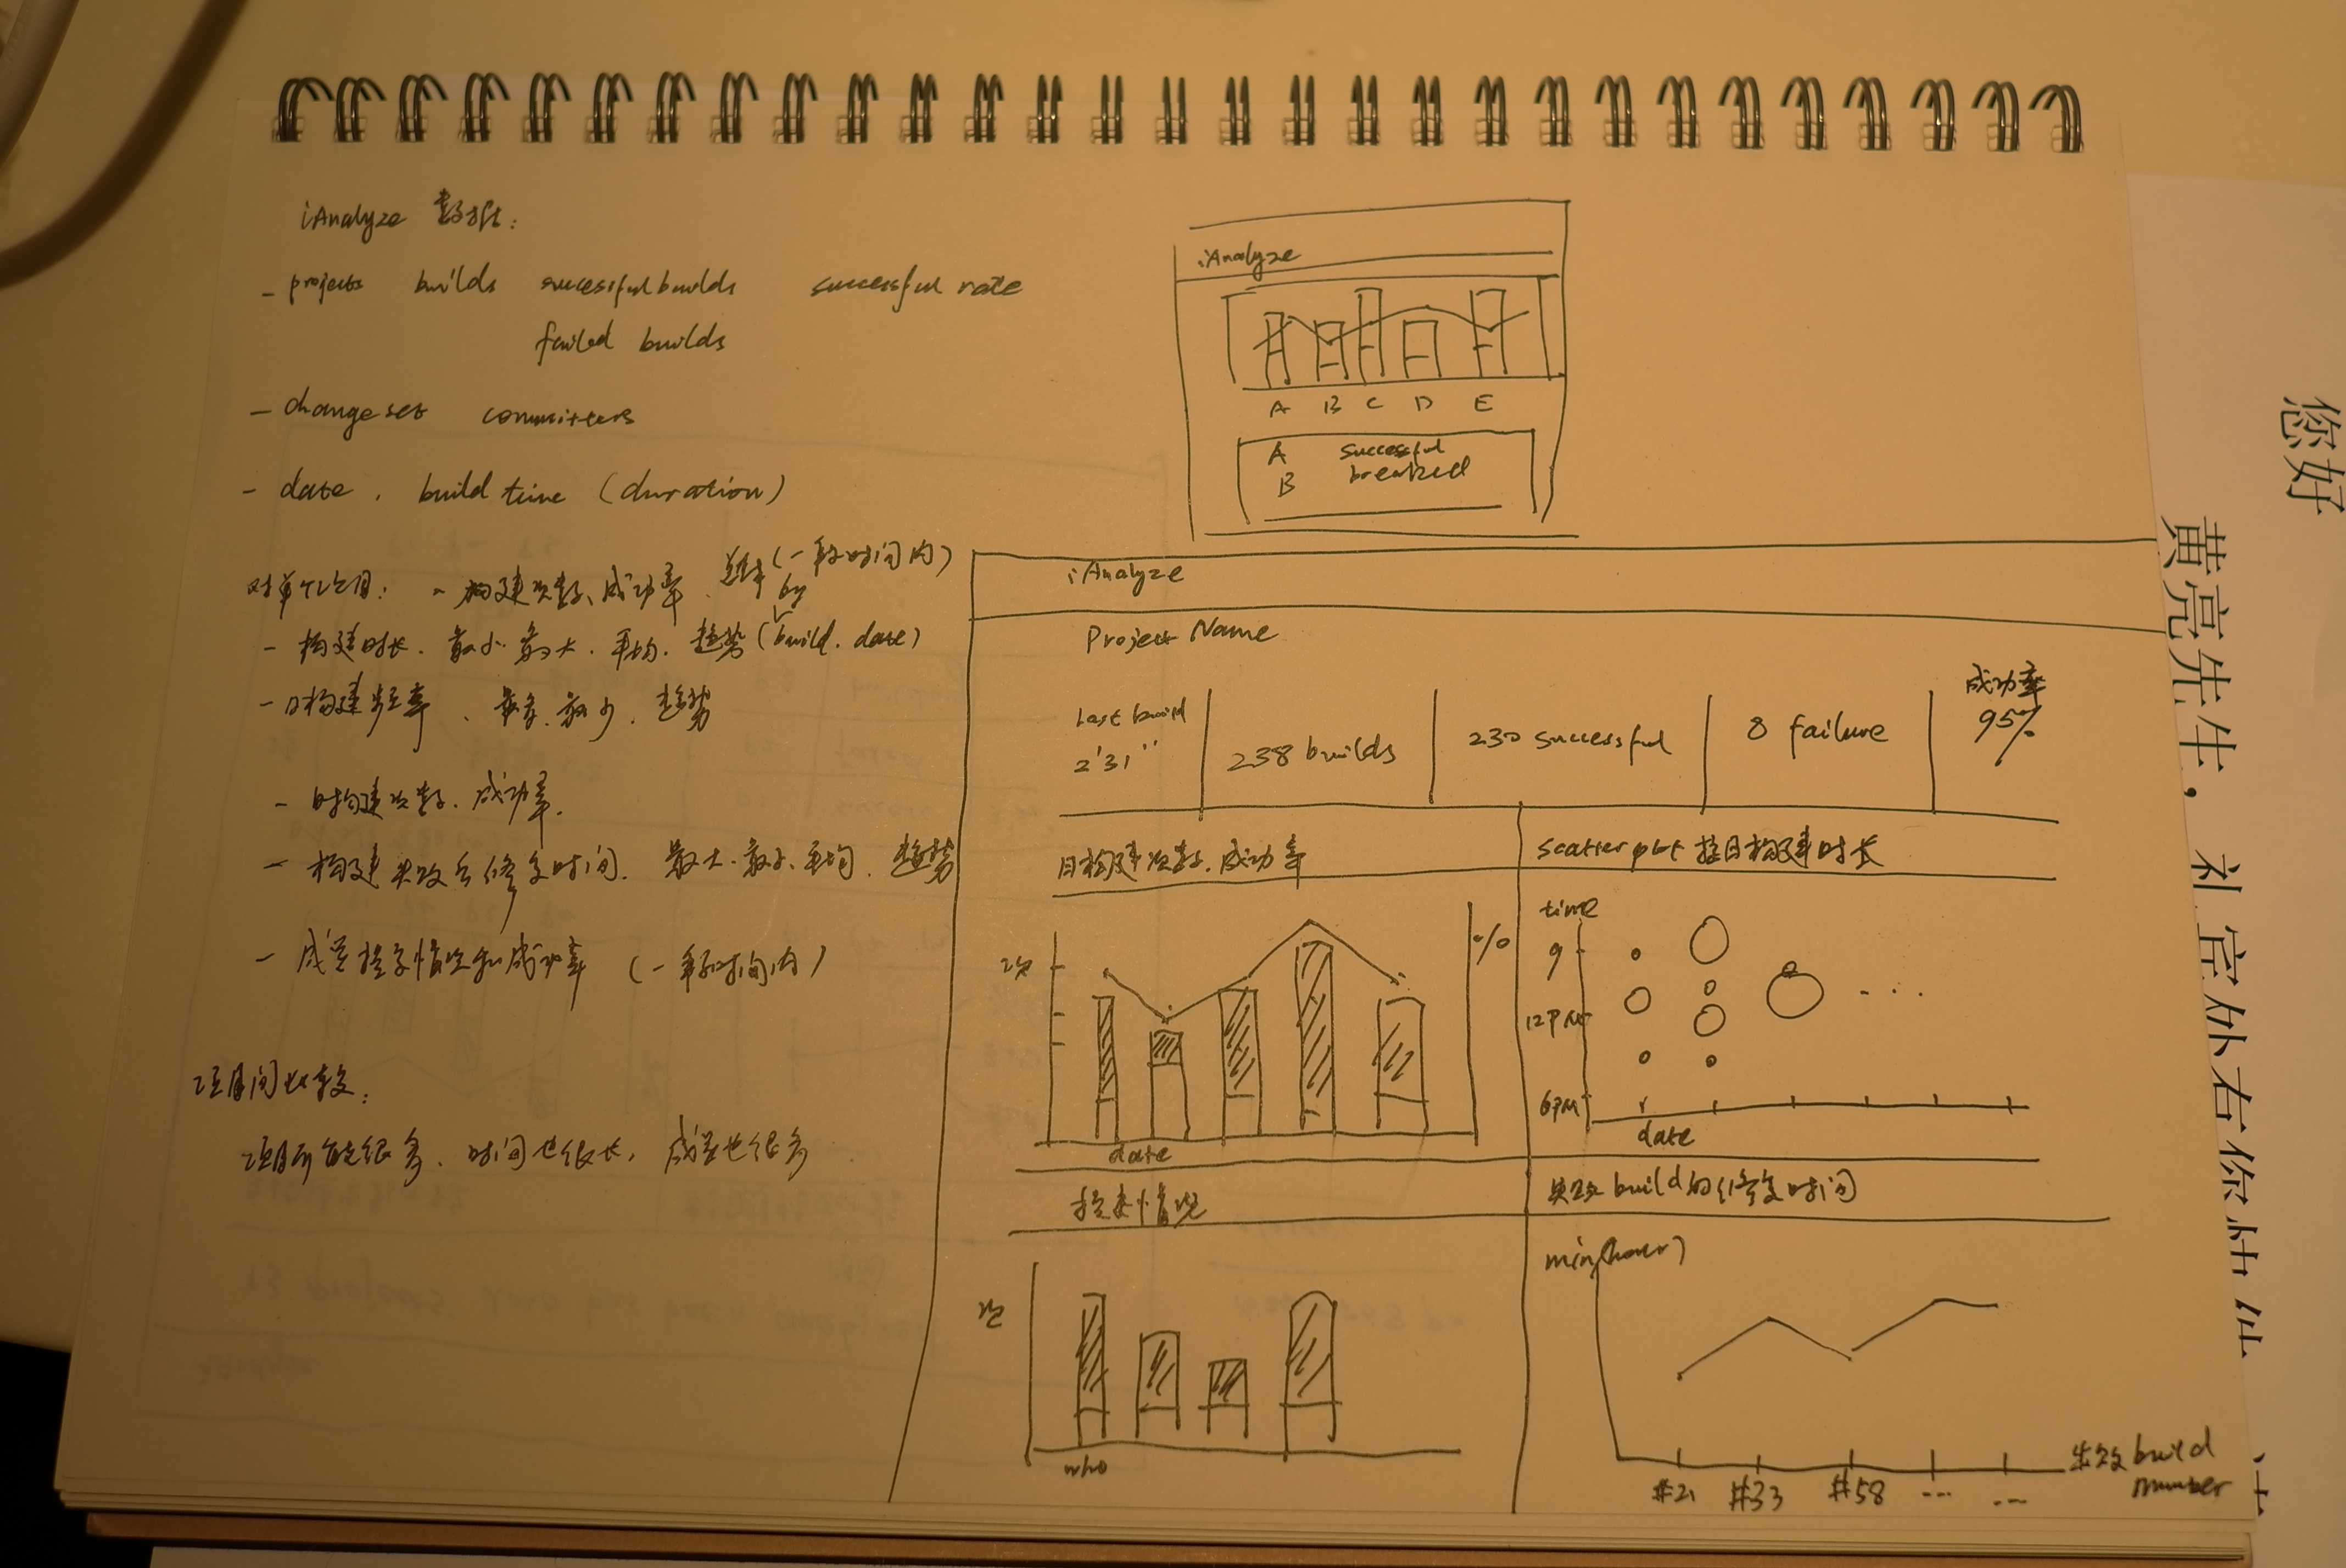 iAnalyze 数据:
- projects builds successful builds successful rate
failed builds
- changeset committers
- date, build time (duration)
对单个项目: - 构建次数、成功率、 (一段时间内)
by
- 构建时长、最小、最大、平均、趋势(build. date)
- 日构建频率、最多、最少、趋势
- 时构建次数、成功率.
- 构建失败后修复时间、最大、最小、平均、趋势
- 成员提交情况和成功率 (一段时间内)
项目间比较:
项目可能很多、时间也很长, 成员也很多
iAnalyze
A B C D E
A successful
B breaked
iAnalyze
Project Name
Last build
2'31"
238 builds
230 successful
8 failure
成功率
95%
日构建次数、成功率
次
%
date
scatter plot 按日构建时长
time
9
12PM
6PM
date
提交情况
次
who
失败build的修复时间
min(hour)
#21 #33 #58 ... ...
失败build
number
您好
黄亮先生，礼宾外右你